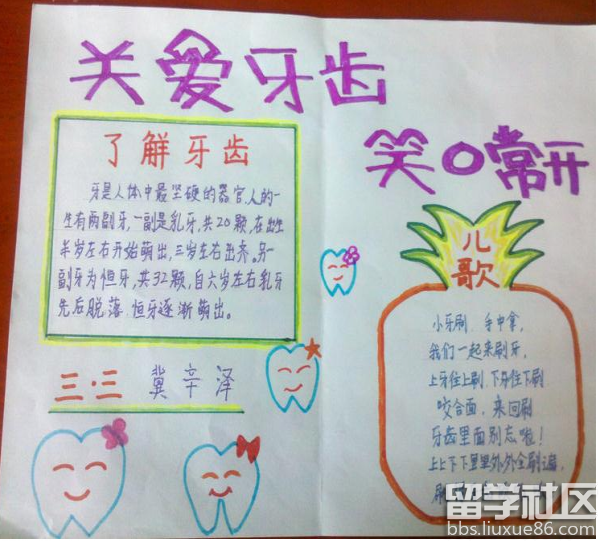 关爱牙齿
笑口常开
了解牙齿
牙是人体中最坚硬的器官,人的一
生有两副牙,一副是乳牙,共20颗,在出生
半岁左右开始萌出,三岁左右出齐,另一
副牙为恒牙,共32颗,自六岁左右乳牙
先后脱落 恒牙逐渐萌出。
三·三 冀辛泽
儿歌
小牙刷 手中拿,
我们一起来刷牙,
上牙往上刷,下牙往下刷
咬合面,来回刷
牙齿里面别忘啦!
上上下下里里外外全刷遍,
刷
留学社区
bbs.liuxue86.com